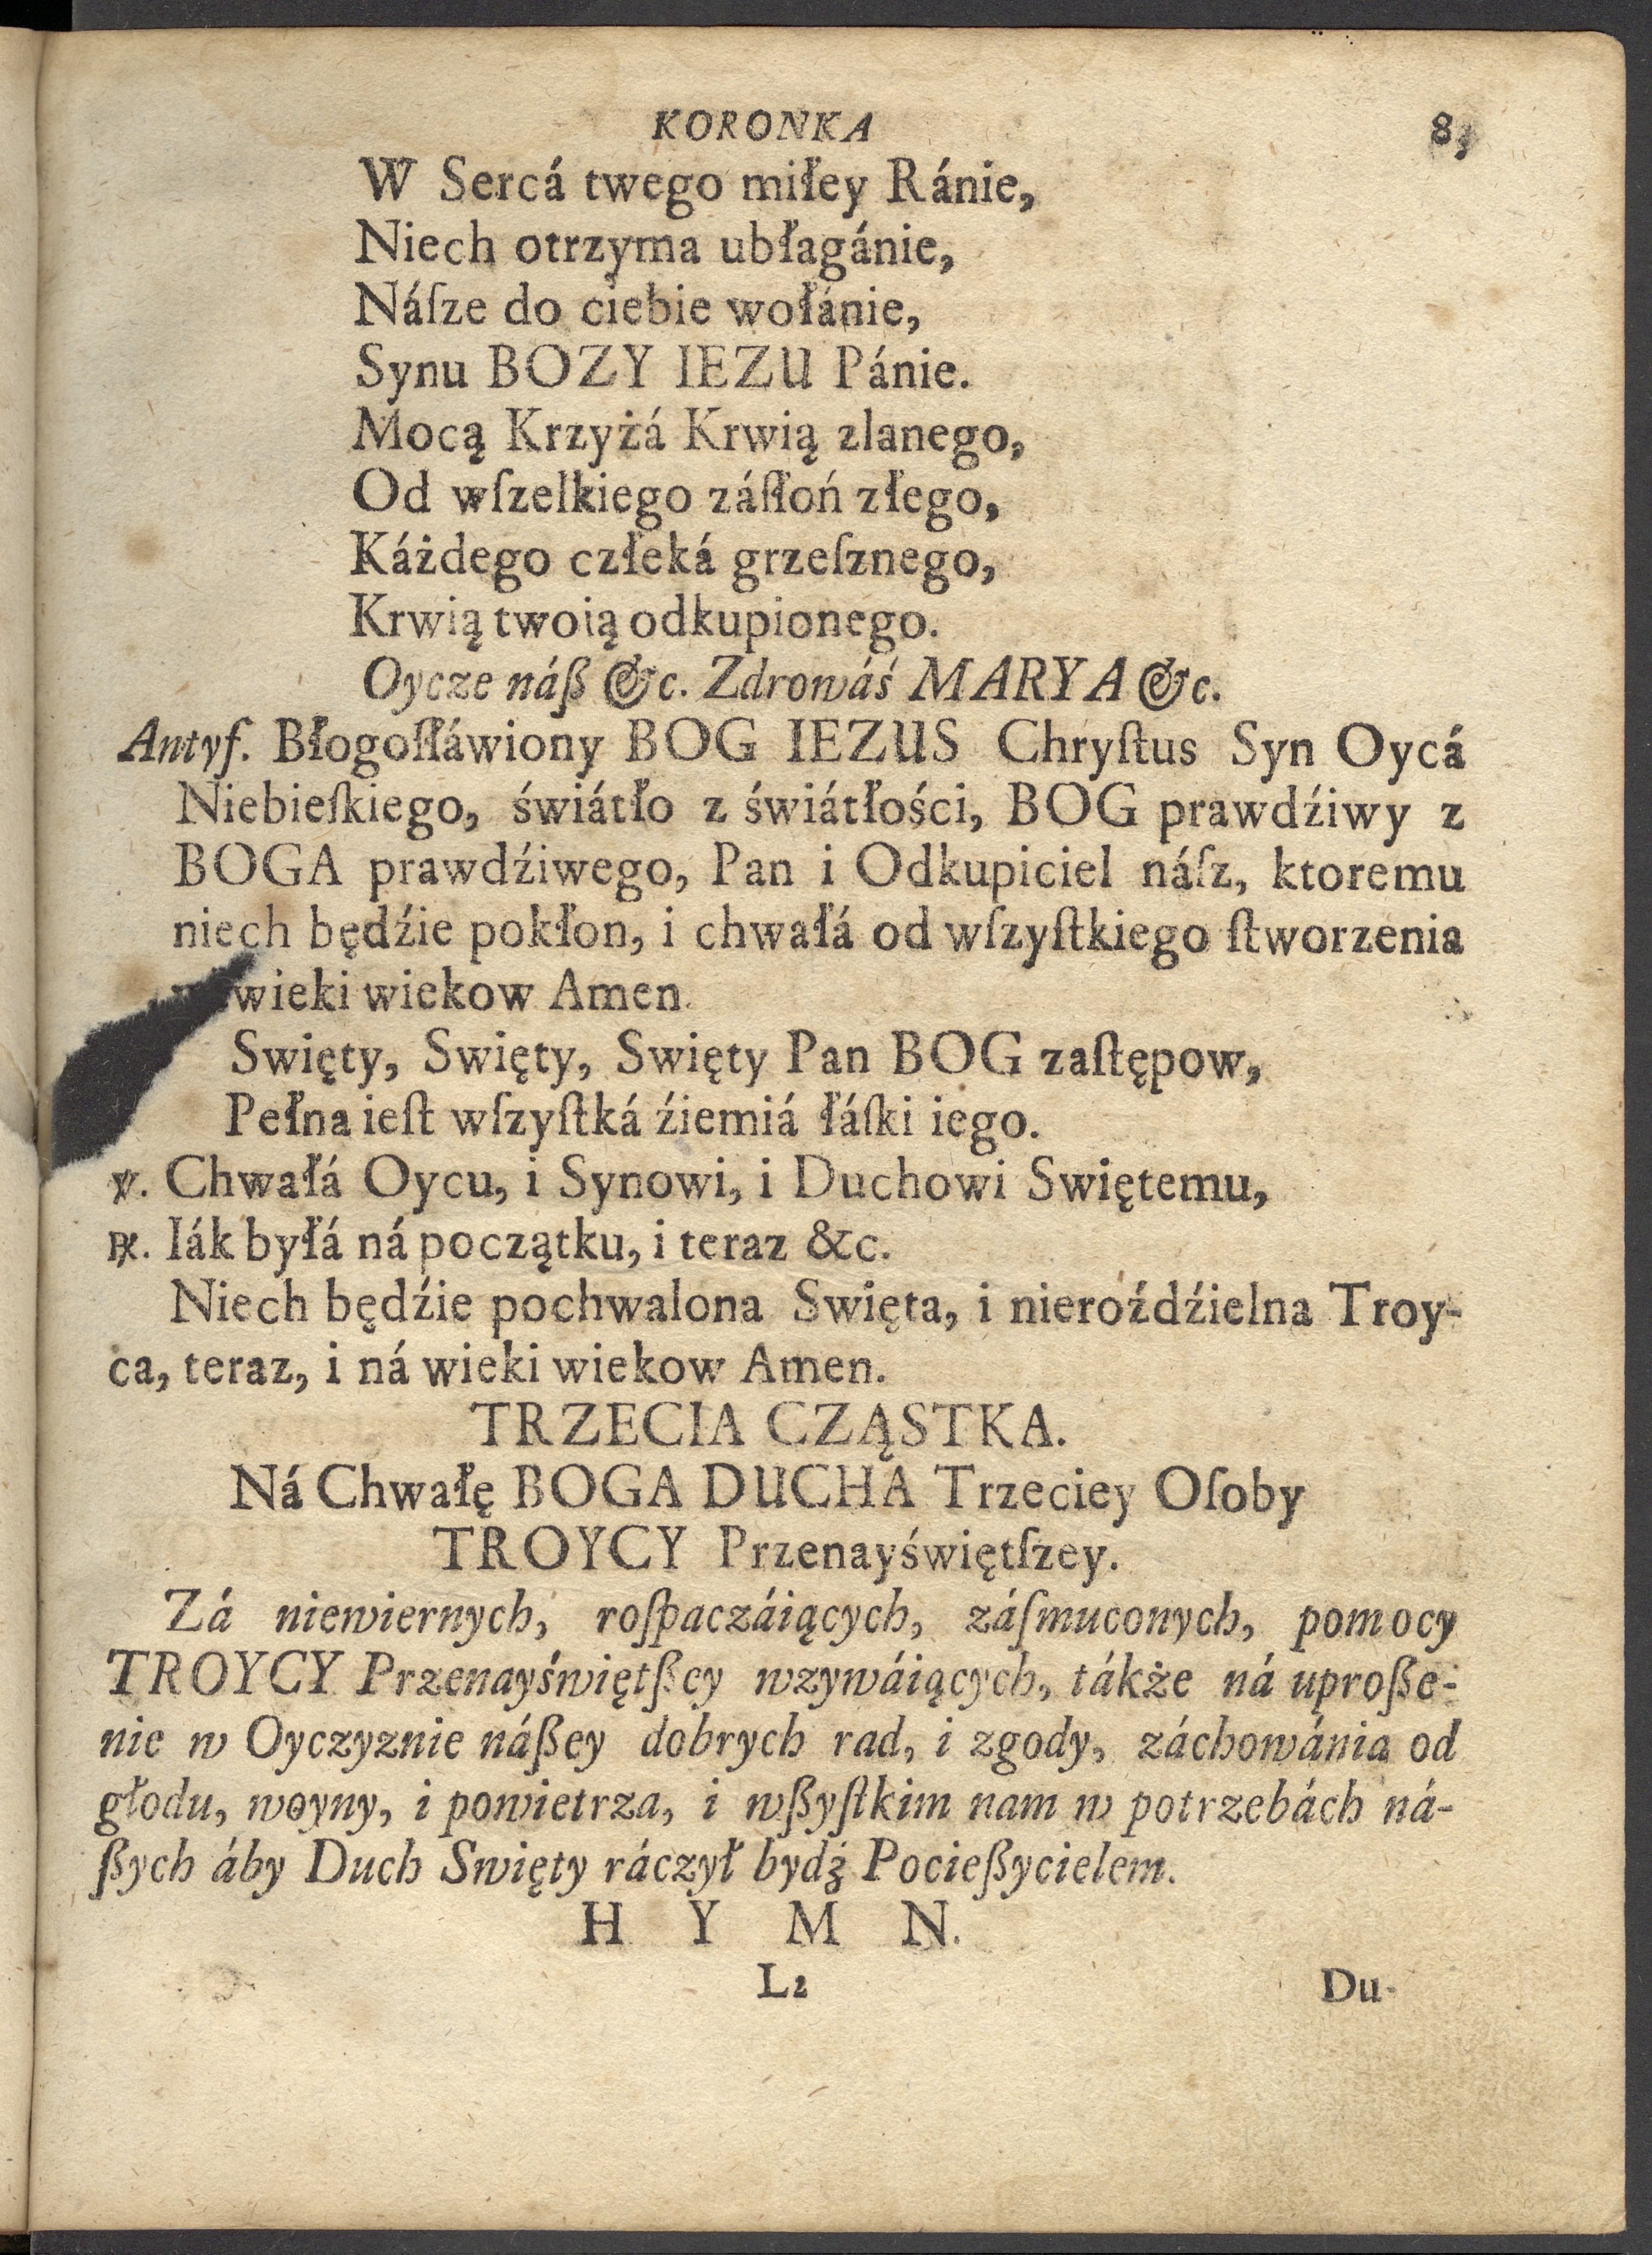 KORONKA 83
W Sercá twego miłey Ránie,
Niech otrzyma ubłagánie,
Náſze do ciebie wołánie,
Synu BOZY IEZU Pánie.
Mocą Krzyżá Krwią zlanego,
Od wſzelkiego záſłoń złego,
Káżdego człeká grzeſznego,
Krwią twoią odkupionego.
Oycze náß &c. Zdrowáś MARYA &c.
Antyf. Błogoſłáwiony BOG IEZUS Chryſtus Syn Oycá
Niebieſkiego, świátło z świátłości, BOG prawdźiwy z
BOGA prawdźiwego, Pan i Odkupiciel náſz, ktoremu
niech będźie pokłon, i chwałá od wſzyſtkiego ſtworzenia
wieki wiekow Amen.
Swięty, Swięty, Swięty Pan BOG zaſtępow,
Pełna ieſt wſzyſtká źiemiá łáſki iego.
℣. Chwałá Oycu, i Synowi, i Duchowi Swiętemu,
℟. Iák byłá ná początku, i teraz &c.
Niech będźie pochwalona Swięta, i nieroźdźielna Troy-
ca, teraz, i ná wieki wiekow Amen.
TRZECIA CZĄSTKA.
Ná Chwałę BOGA DUCHA Trzeciey Oſoby
TROYCY Przenayświętſzey.
Zá niewiernych, roſpaczáiących, záſmuconych, pomocy
TROYCY Przenayświętßey wzywáiących, tákże ná uproße-
nie w Oyczyznie náßey dobrych rad, i zgody, záchowánia od
głodu, woyny, i powietrza, i wßyſtkim nam w potrzebách ná-
ßych áby Duch Swięty ráczył bydź Pocießycielem.
H Y M N.
L2 Du-